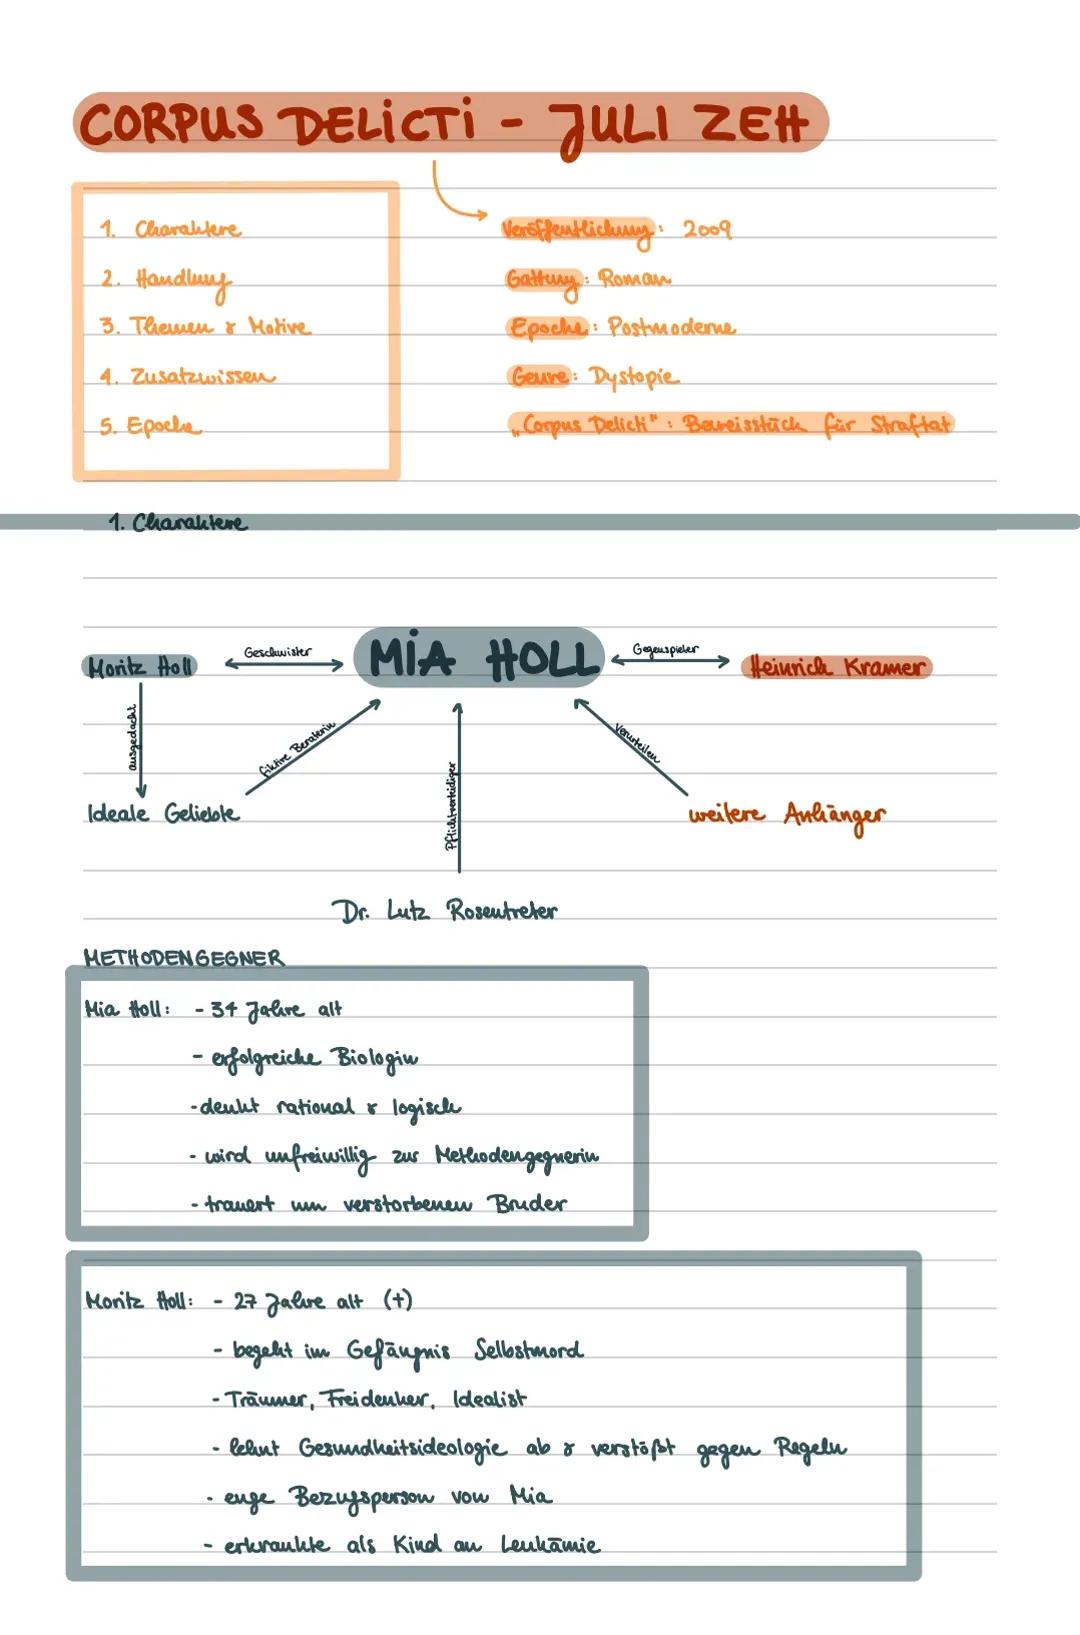 CORPUS DELICTI - JULI ZEH
1. Charaktere
2. Handlung
3. Themen & Motive
4. Zusatzwissen
5. Epoche
Veröffentlichung: 2009
Gattung: Roman
Epoche: Postmoderne
Genre: Dystopie
„Corpus Delicti": Beweisstück für Straftat
1. Charaktere
Moritz Holl
Geschwister
MIA HOLL
Gegenspieler
Heinrich Kramer
ausgedacht
fiktive Beraterin
Pflichtverteidiger
verurteilen
Ideale Geliebte
weitere Anhänger
Dr. Lutz Rosentreter
METHODENGEGNER
Mia Holl: - 34 Jahre alt
- erfolgreiche Biologin
- denkt rational & logisch
- wird unfreiwillig zur Methodengegnerin
- trauert um verstorbenen Bruder
Moritz Holl: - 27 Jahre alt (+)
- begeht im Gefängnis Selbstmord
- Träumer, Freidenker, Idealist
- lehnt Gesundheitsideologie ab & verstößt gegen Regeln
- enge Bezugsperson von Mia
- erkrankte als Kind an Leukämie